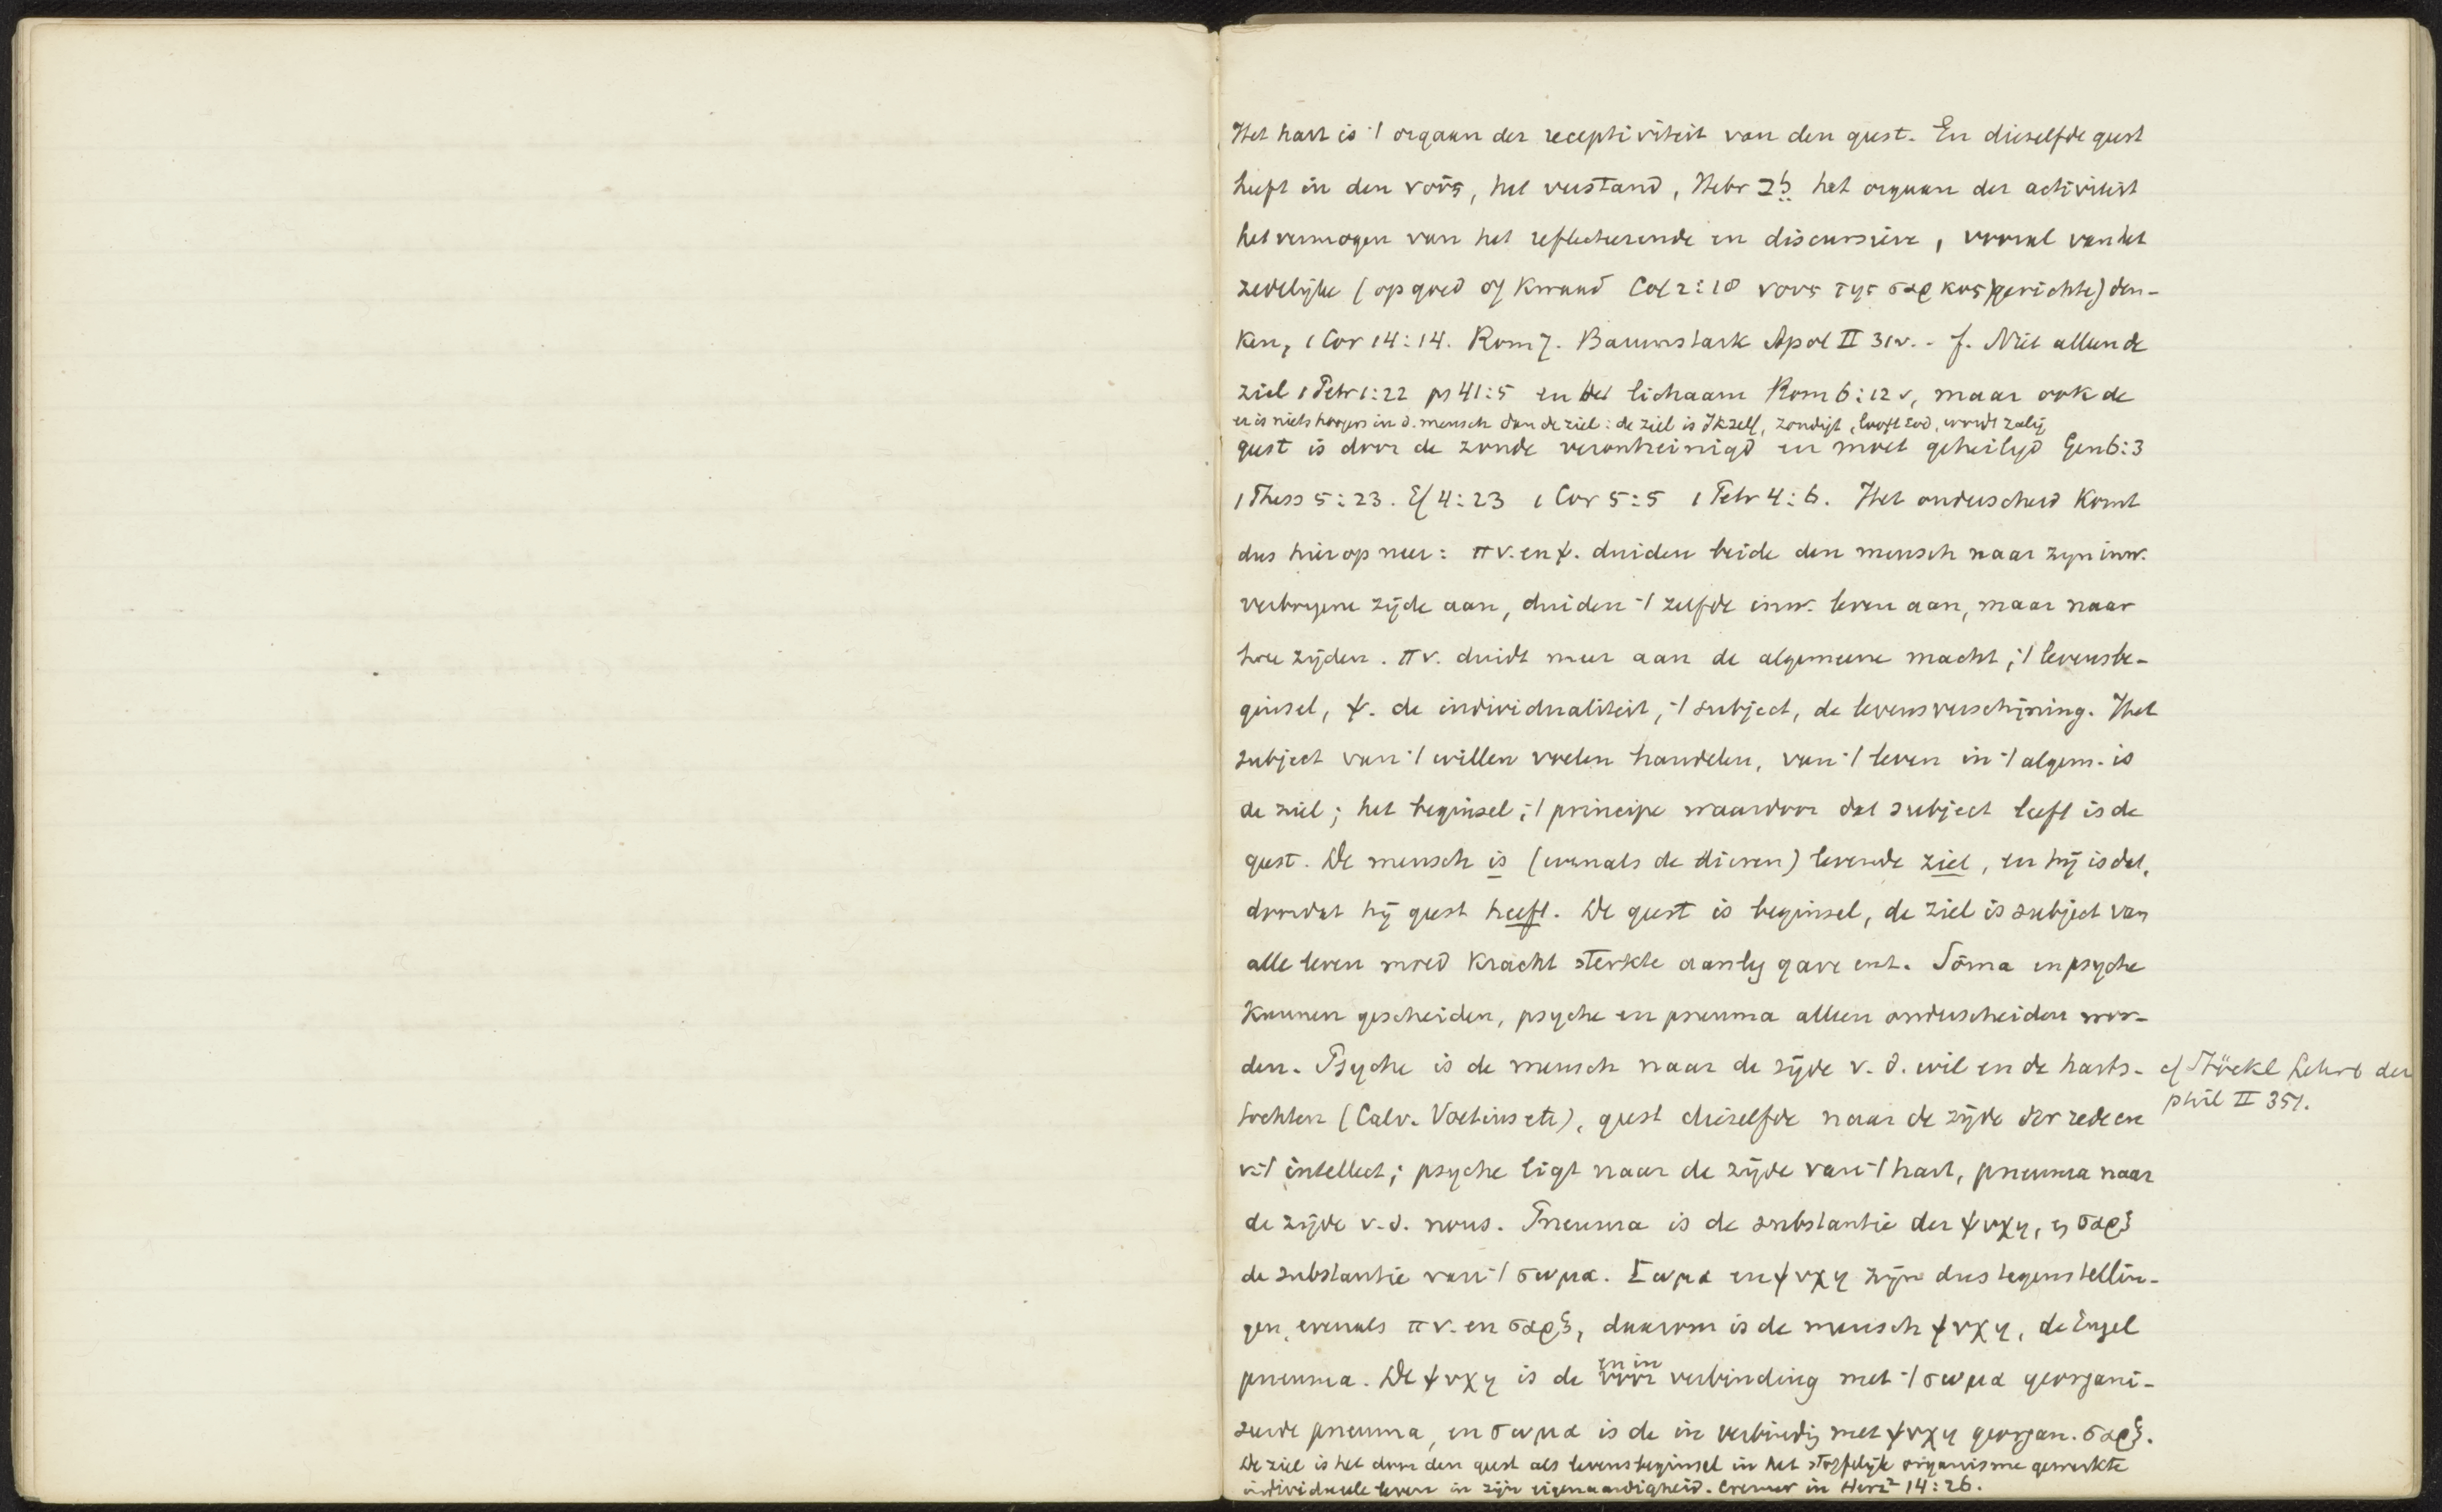 Het hart is 't orgaan der receptiviteit van den geest. En diezelfde geest
heeft in den νοῦς, het verstand, Hebr לב het orgaan der activiteit
het vermogen van het reflecteerende en discursieve, vooral van het
zedelijke (op goed of kwaad Col 2:18 νους της σαρκος) gerichte) den-
ken, 1 Cor 14:14. Rom 7. Baumstark Apol II 31v. - f. Niet alleen de
ziel 1 Petr 1:22 ps 41:5 en het lichaam Rom 6:12 v, maar ook de
er is niets hoogers in d. mensch dan de ziel: de ziel is Ikzelf, zondigt, looft God, wordt zalig
geest is door de zonde verontreinigd en moet geheiligd Gen 6:3
1 Thess 5:23. Ef 4:23 1 Cor 5:5 1 Petr 4:6. Het onderscheid komt
dus hierop neer: πν. en ψ. duiden beide den mensch naar zijn inw.
verborgene zijde aan, duiden 't zelfde inw. leven aan, maar naar
twee zijden. πν. duidt meer aan de algemeene macht, 't levensbe-
ginsel, ψ. de individualiteit, 't subject, de levensverschijning. Het
subject van 't willen voelen handelen, van 't leven in 't algem. is
de ziel; het beginsel, 't principe waardoor dat subject leeft is de
geest. De mensch is (evenals de dieren) levende ziel, en hij is dat,
doordat hij geest heeft. De geest is beginsel, de ziel is subject van
alle leven moed kracht sterkte aanleg gave enz. Sôma en psyche
kunnen gescheiden, psyche en pneuma alleen onderscheiden wor-
den. Psyche is de mensch naar de zijde v. d. wil en de harts-
tochten (Calv. Voetius etc), geest diezelfde naar de zijde der rede en
v. 't intellect; psyche ligt naar de zijde van 't hart, pneuma naar
de zijde v. d. nous. Pneuma is de substantie der ψυχη, en σαρξ
de substantie van 't σωμα. Σωμα en ψυχη zijn dus tegenstellin-
gen, evenals πν. en σαρξ, daarom is de mensch ψυχη, de Engel
pneuma. De ψυχη is de voor en in verbinding met 't σωμα georgani-
seerde pneuma, en σωμα is de in verbindig met ψυχη georgan. σαρξ.
De ziel is het door den geest als levensbeginsel in het stoffelijk organisme gewerkte
individueele leven in zijn eigenaardigheid. Cremer in Herz² 14:26.
cf Stöckl Lehrb der
phil II 351.